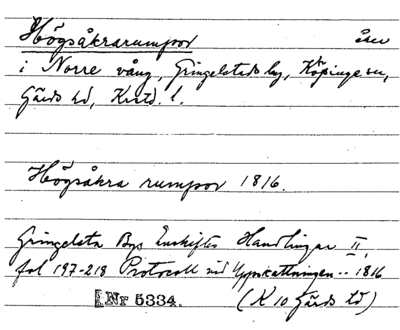 Högsåkrarumpor åker
i Norre vång, Gringelstads by, Köpinge sn,
Gärds hd, Kristd. l.
Högsåkra rumpor 1816.
Gringelsta Bys Enskiftes Handlingar II,
fol 197-218 Protocoll vid Uppskattningen -- 1816
Nr 5334. (K 10 Gärds hd)